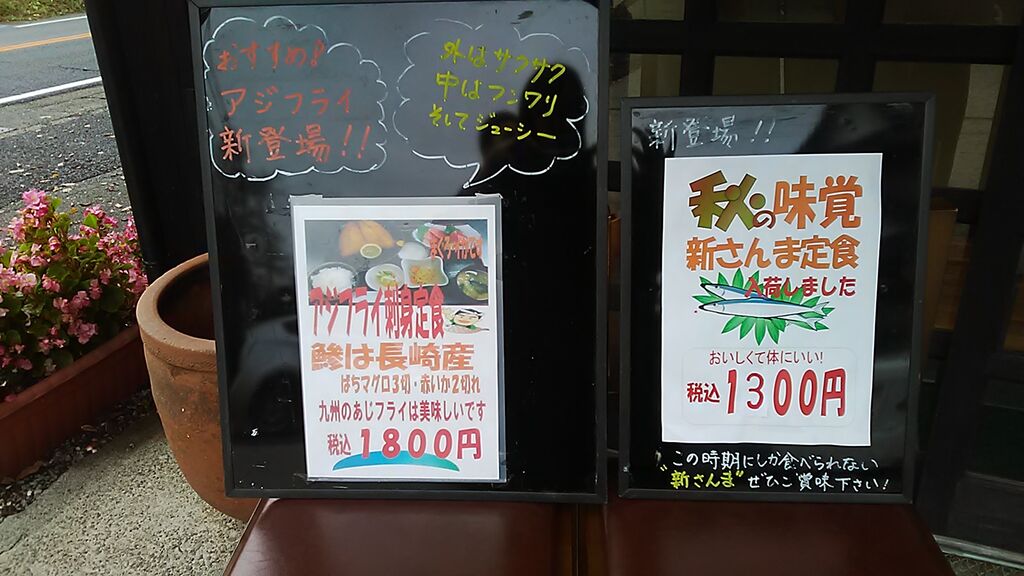 おすすめ!
アジフライ
新登場!!
外はサクサク
中はフンワリ
そしてジューシー
アジフライ刺身定食
鯵は長崎産
ばちマグロ3切・赤いか2切れ
九州のあじフライは美味しいです
税込 1800円
新登場!!
秋の味覚
新さんま定食
入荷しました
おいしくて体にいい!
税込 1300円
この時期にしか食べられない
"新さんま" ぜひご賞味下さい!